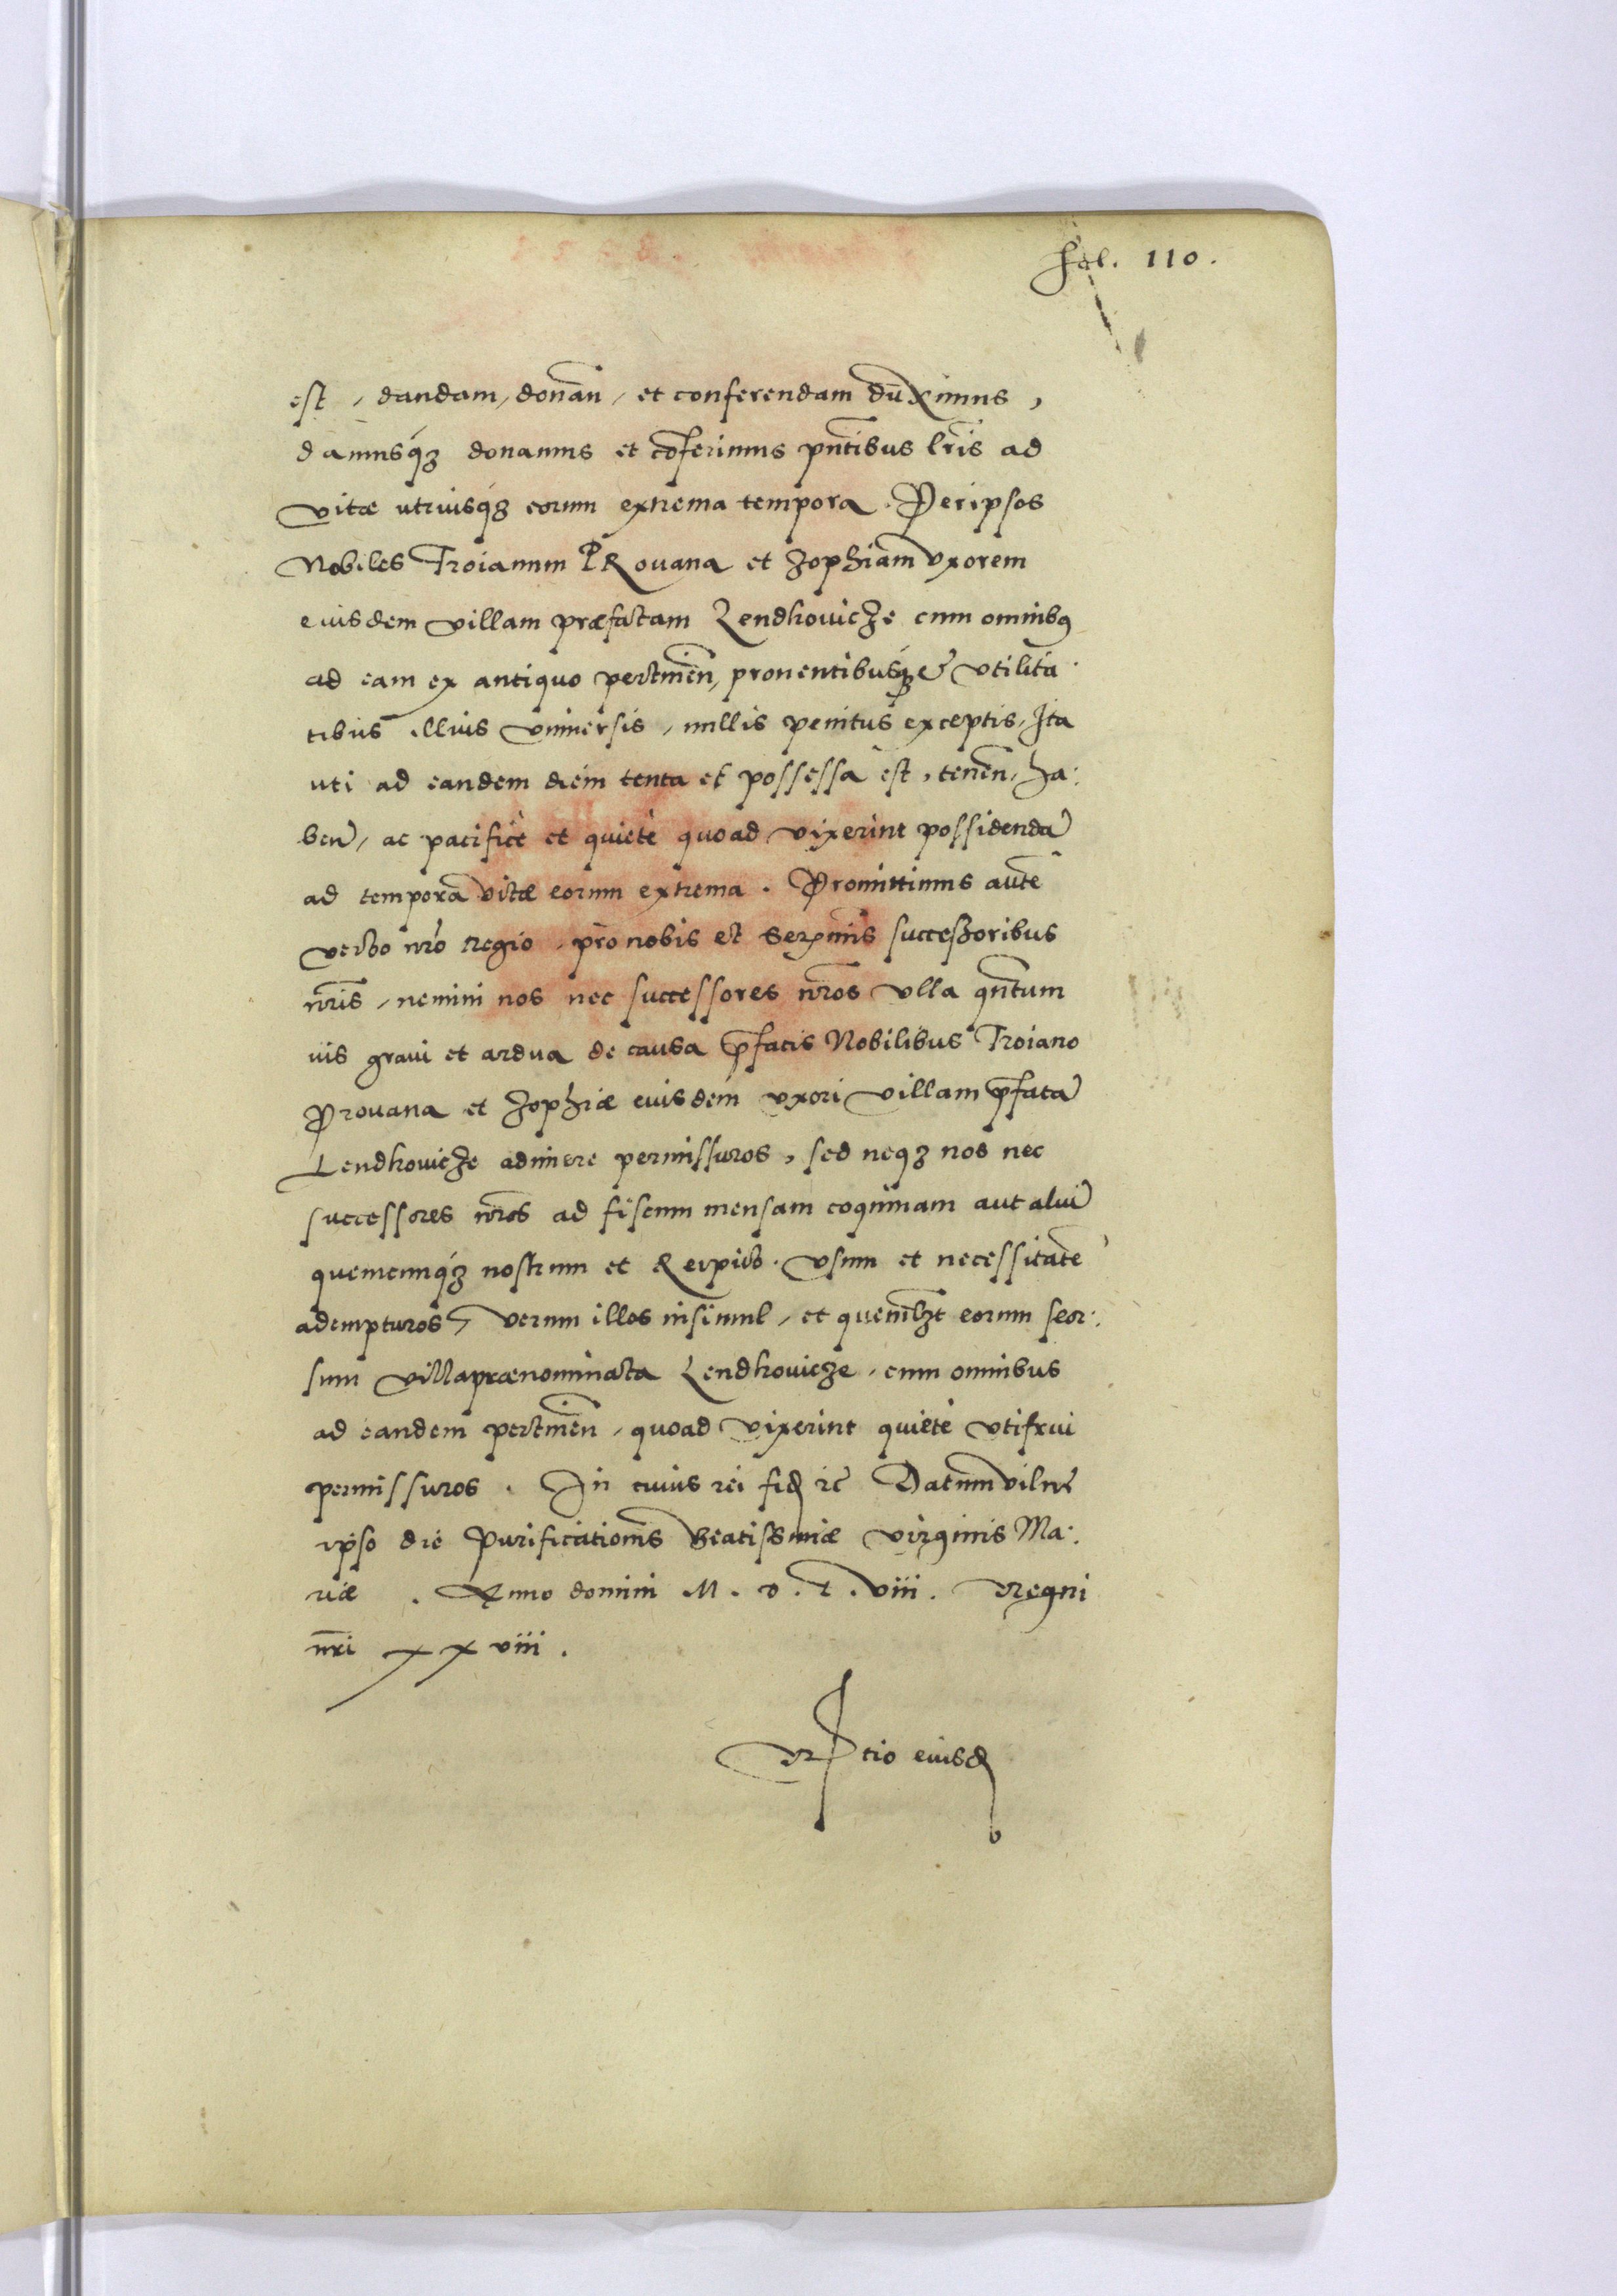 fol. 110.
est, dandam, donañ, et conferendam dūximus,
damusq́ꝫ donamus et cōferimus pn̄tibus lr̄is ad
vitæ utriusq́ꝫ eorum extrema tempora. Per ipsos
Nobiles Troianum PRouana et Zophiam Vxorem
eiusdem villam præfactam Lendkouicze cum omnibꝯ
ad eam ex antiquo pertineñ, prouentibusq́ꝫ et vtilita
tibus illius vniuersis, nullis penitus exceptis, Ita
uti ad eandem diem tenta et possessa est, teneñ, ha:
beñ, ac pacificè et quietè quoad vixerint possidendā
ad tempora vitæ eorum extrema. Promittimus autē
verbo nr̄o regio, pro nobis et Serx̄mis successoribus
nr̄is, nemini nos nec successores nr̄os vlla qn̄tum
uis graui et ardua de causa p̄fatis Nobilibus Troiano
Prouana et Zophiæ eiusdem vxori villam p̄fatā
Lendkouicze adimere permissuros, sed neqꝫ nos nec
successores nr̄os ad fiscum mensam coquinam aut aliū
quemcunq́ꝫ nostrum et Reipub. vsum et necessitatē
adempturos, verum illos insimul, et quemlꝫt eorum seor:
sum villa prænominata Lendkouicze, cum omnibus
ad eandem pertineñ, quoad vixerint quietè vtifrui
permissuros. In cuius rei fid̄ ꝛc̄ Datum vilnę
ipso die Purificationis Beatissimæ virginis Ma:
riæ. Anno domini M. D. L. viii. Regni
nr̄i xxviii.
R̄tio eiusd̄